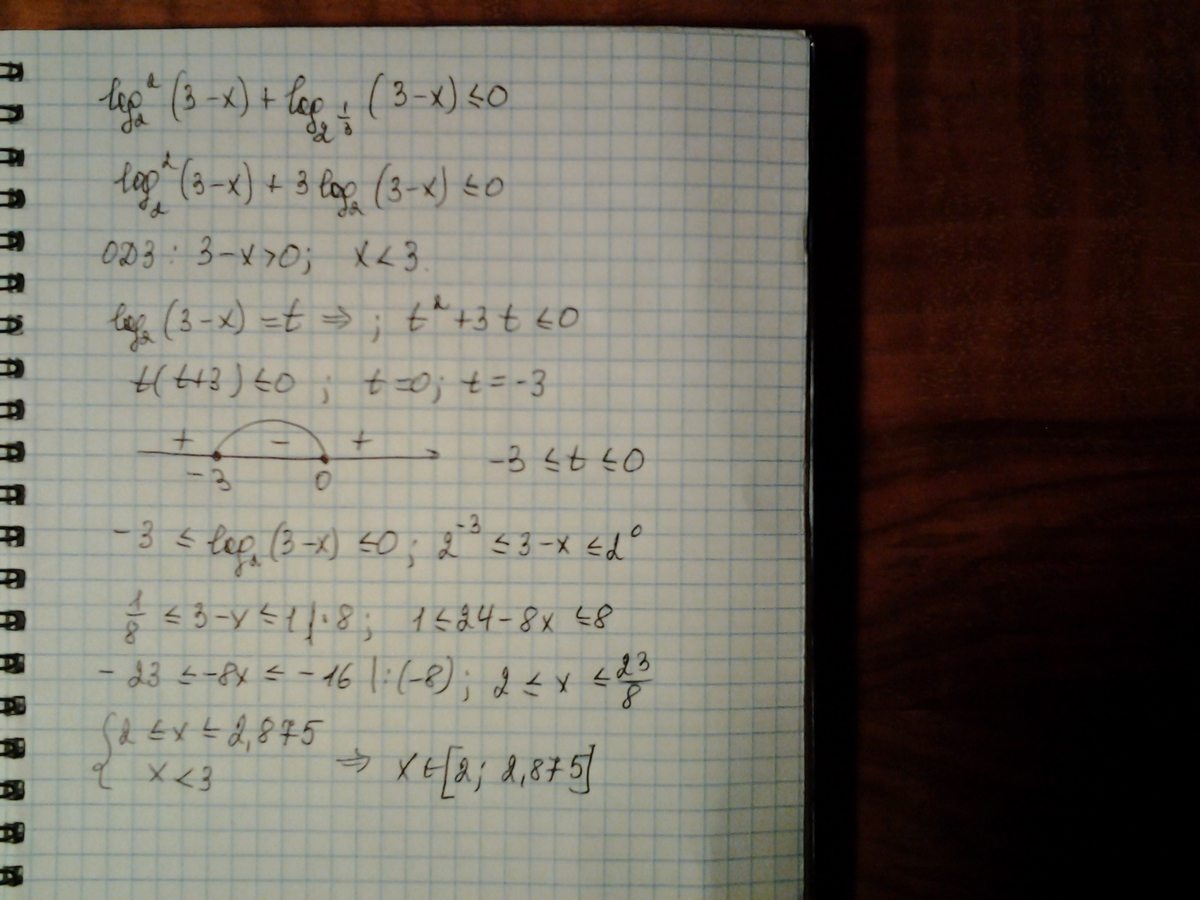 log₂²(3-x) + log_{2^{1/3}}(3-x) ≤ 0
log₂²(3-x) + 3log₂(3-x) ≤ 0
ОДЗ: 3-x>0; x<3.
log₂(3-x) = t ⇒ ; t² + 3t ≤ 0
t(t+3) ≤ 0 ; t=0; t=-3
+ - +
-3 0 -3 ≤ t ≤ 0
-3 ≤ log₂(3-x) ≤ 0; 2⁻³ ≤ 3-x ≤ 2⁰
1/8 ≤ 3-x ≤ 1 |·8; 1 ≤ 24-8x ≤ 8
-23 ≤ -8x ≤ -16 |:(-8); 2 ≤ x ≤ 23/8
{2 ≤ x ≤ 2,875
x < 3 ⇒ x ∈ [2; 2,875]